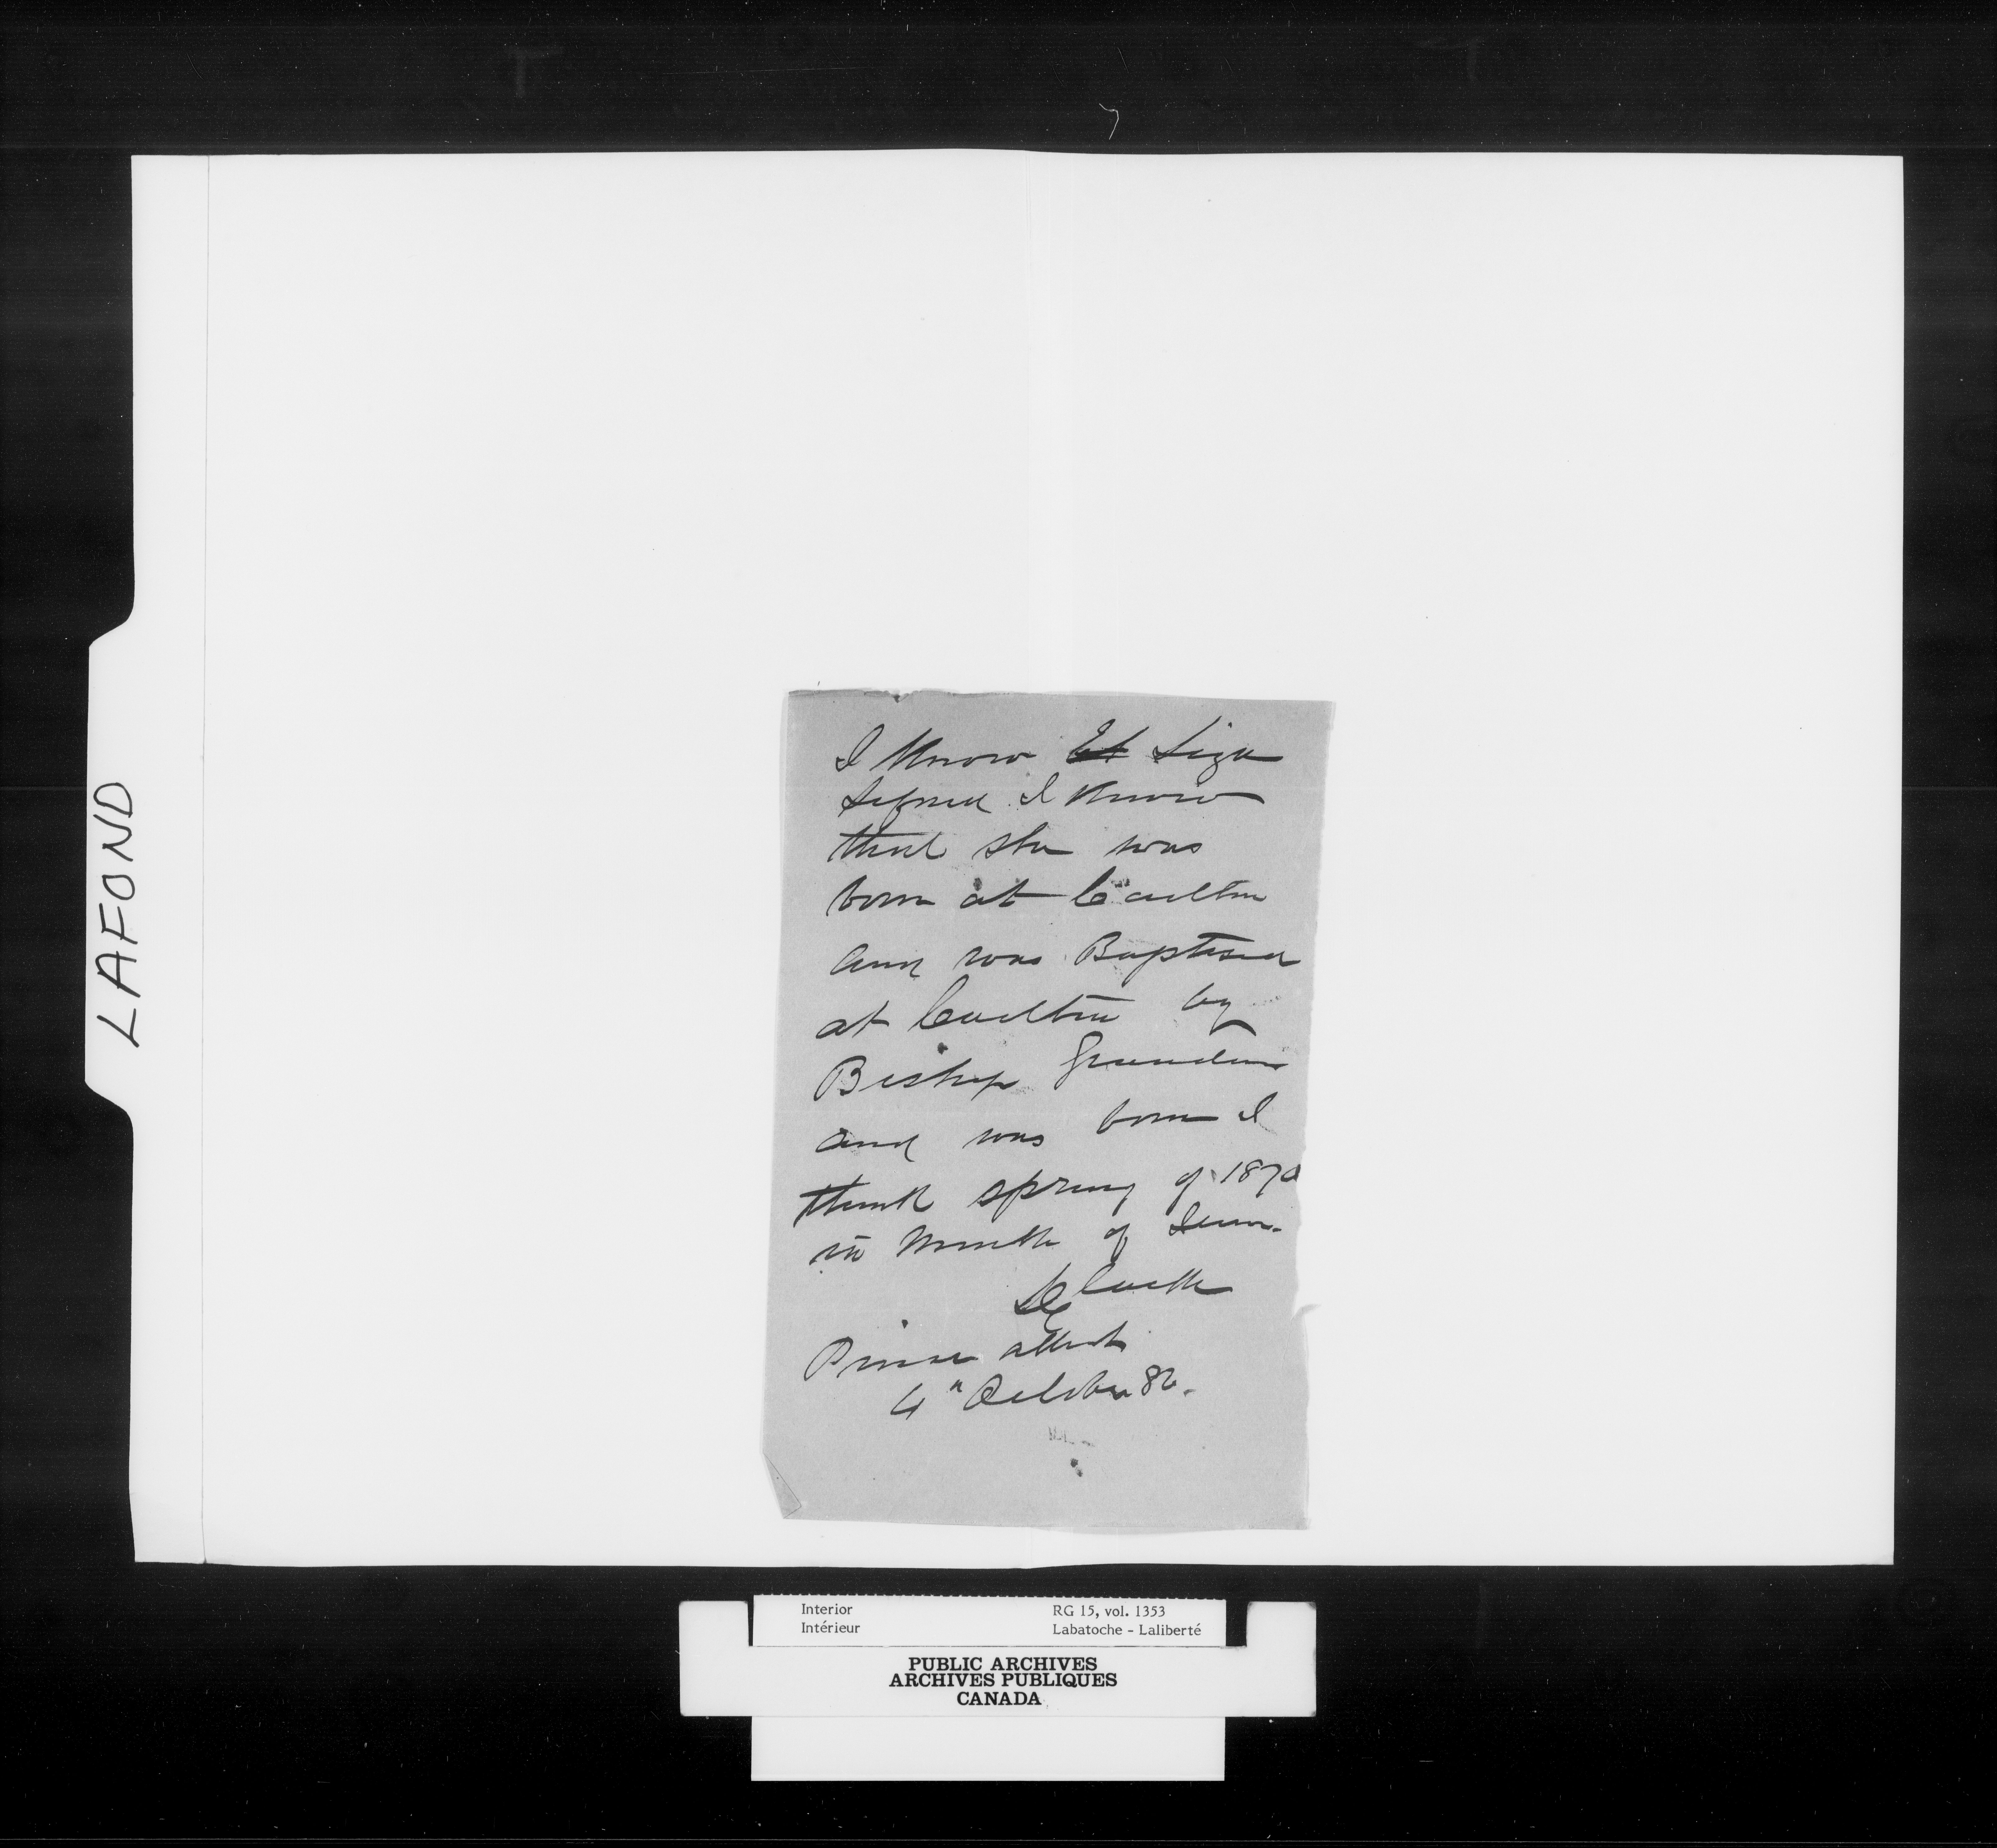 LAFOND
I know Liza
I know
that she was
born at Carlton
and was Baptised
at Carlton by
Bishop Grandin
and was born I
think spring of 1870
in month of
Prince Albert
4" October 86.
Interior
Intérieur
RG 15, vol. 1353
Labatoche - Laliberté
PUBLIC ARCHIVES
ARCHIVES PUBLIQUES
CANADA